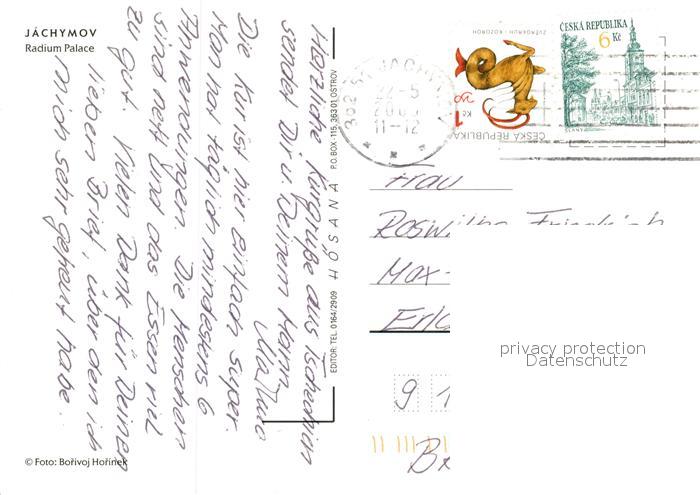 JÁCHYMOV
Radium Palace
Herzliche Kurgrüße aus Tschechien
sendet Dir u. Deinem Mann
Die Kur ist hier einfach super.
Man hat täglich mindestens 6
Anwendungen. Die Menschen
sind nett und das Essen viel
zu gut. Vielen Dank für Deinen
lieben Brief, über den ich
mich sehr gefreut habe.
© Foto: Bořivoj Hořínek
EDITOR: TEL. 0164/2909 HOSANA P.O. BOX-115, 363 01 OSTROV
JÁCHYMOV
22-5
11-12
ZVĚROKRUH - KOZOROH
Kč
ČESKÁ REPUBLIKA
ČESKÁ REPUBLIKA
6 Kč
SLANÝ
Frau
Max-
9 1
privacy protection
Datenschutz